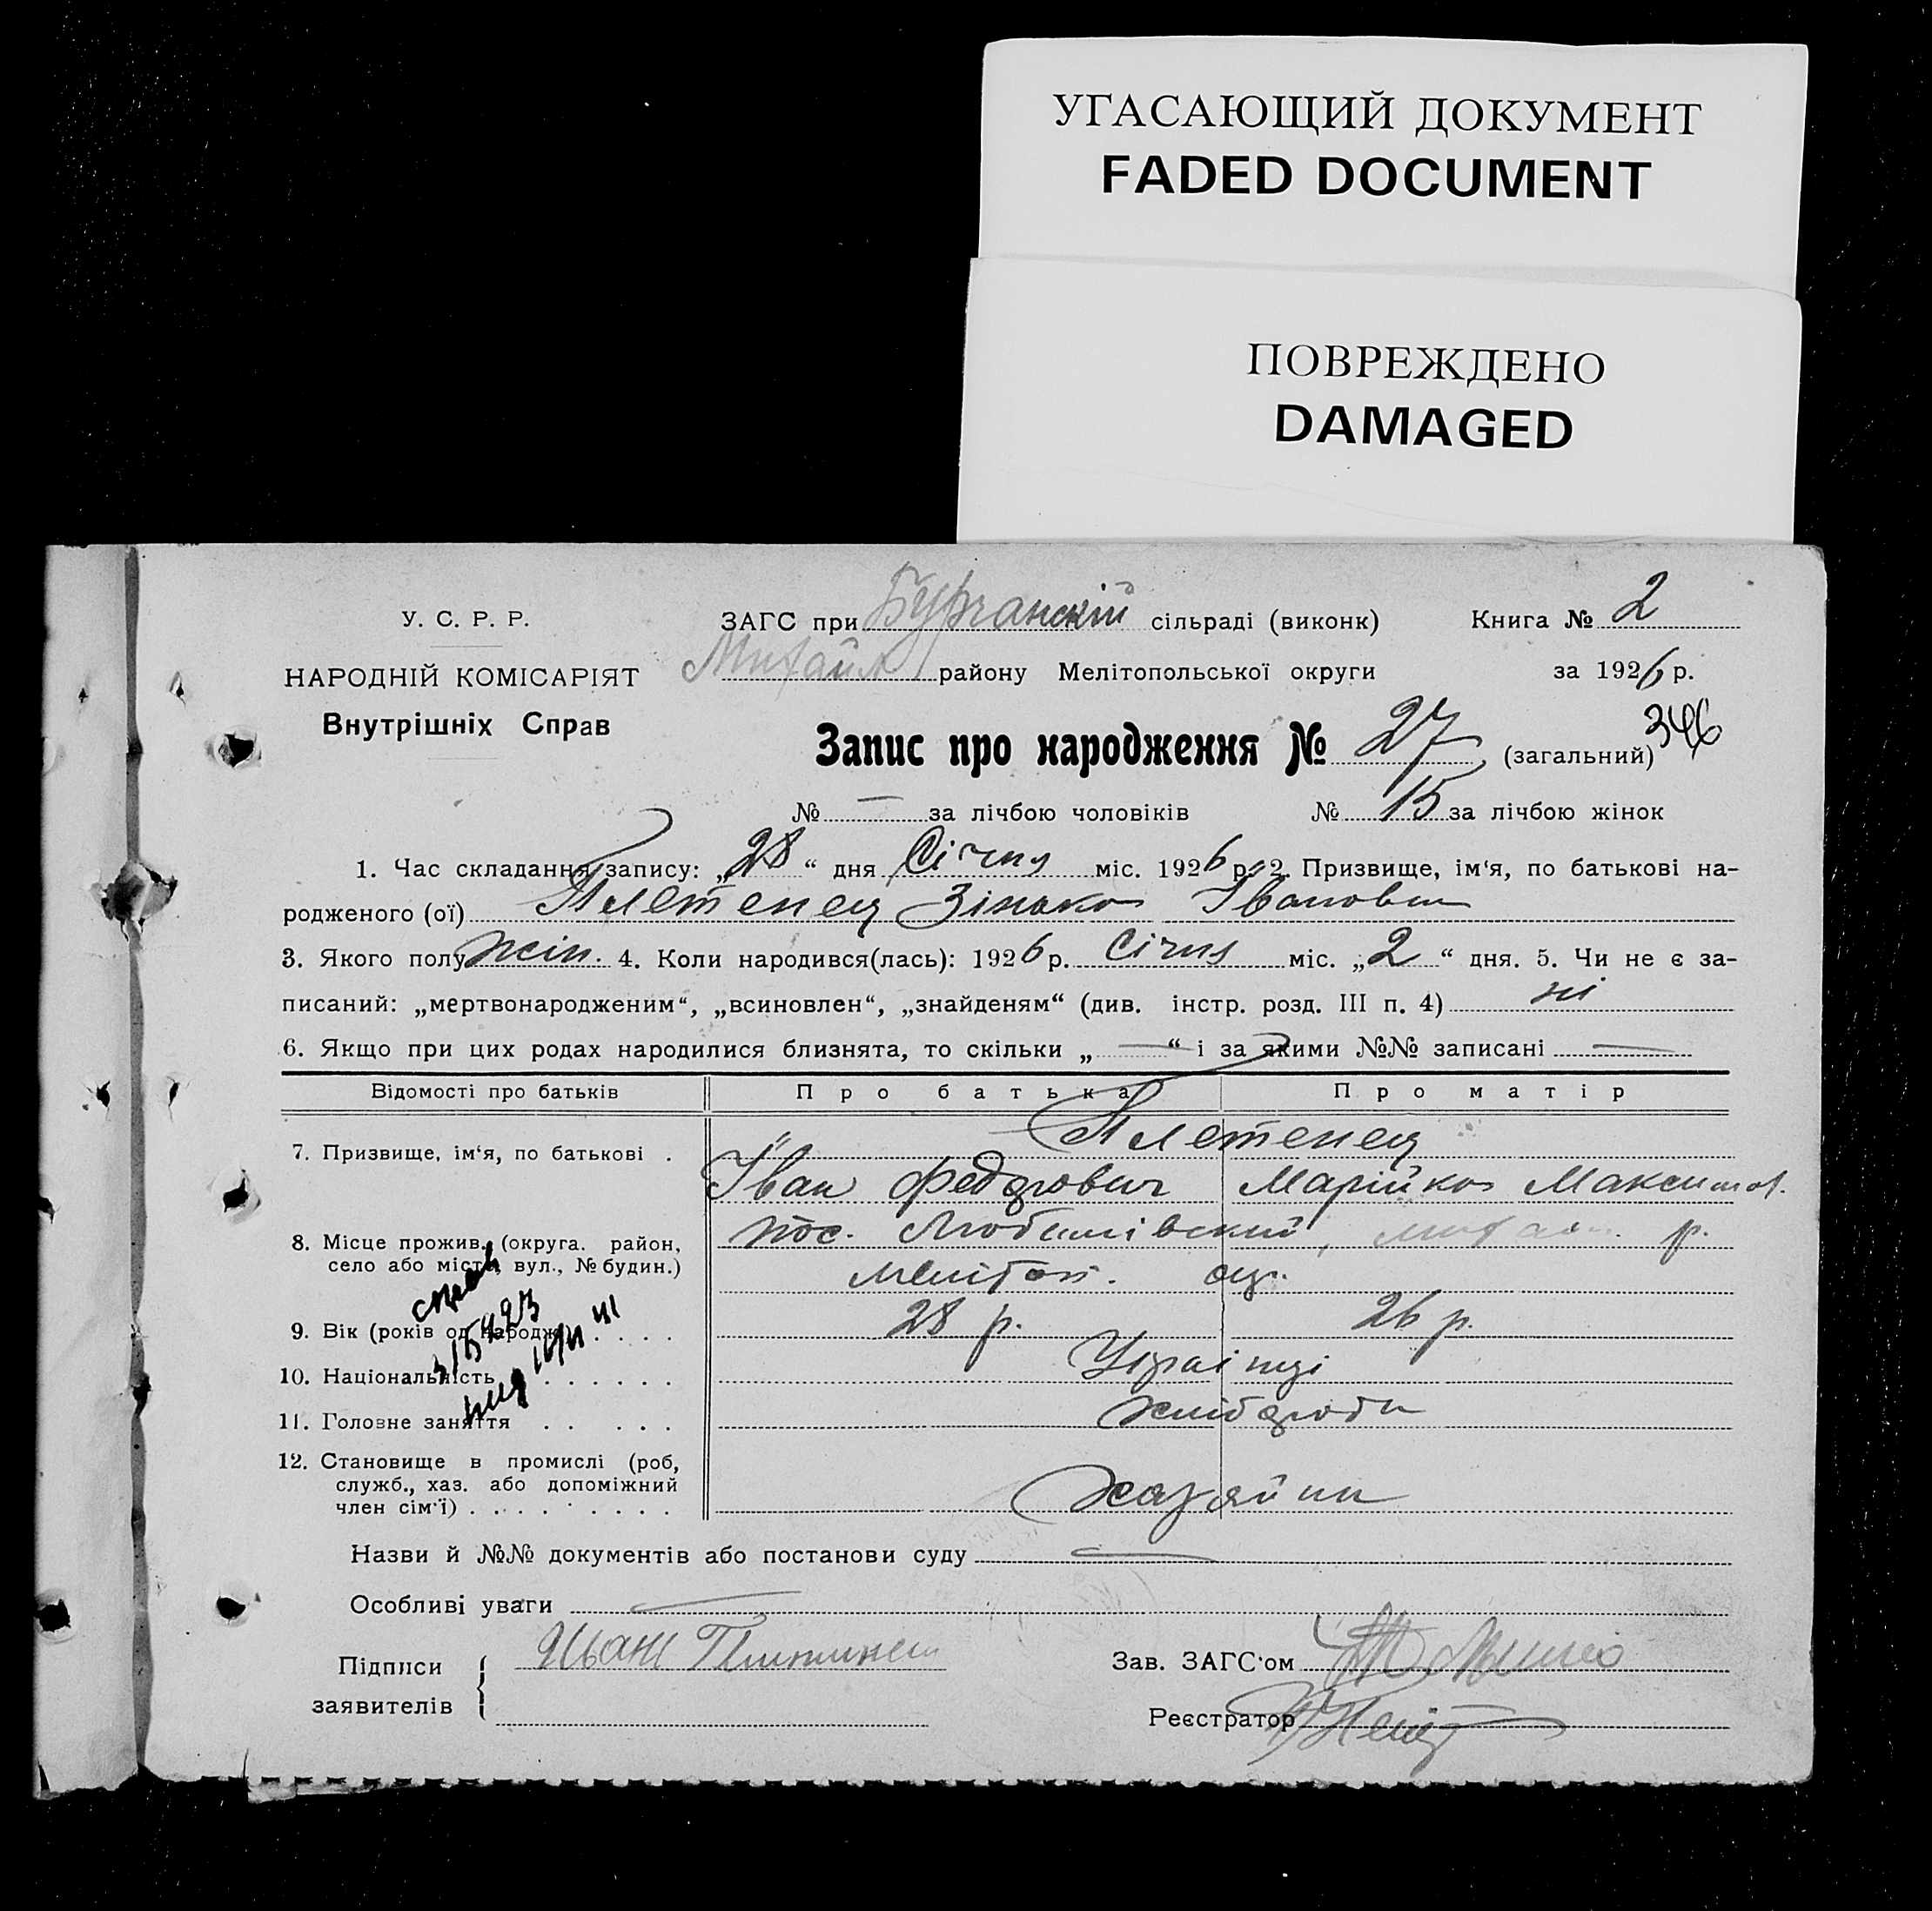 УГАСАЮЩИЙ ДОКУМЕНТ
FADED DOCUMENT
ПОВРЕЖДЕНО
DAMAGED
У. С. Р. Р.
НАРОДНІЙ КОМІСАРІЯТ
Внутрішніх Справ
ЗАГС при Бурчанскій сільраді (виконк) Книга № 2
Михайл району Мелітопольської округи за 1926 р.
346
Запис про народження № 27 (загальний)
№ — за лічбою чоловіків № 15 за лічбою жінок
1. Час складання запису: „28“ дня Січня міс. 1926 р. 2. Призвище, ім‘я, по батькові на-
родженого (ої) Плетенец Зінька Івановна
3. Якого полу жін. 4. Коли народився(лась): 1926 р. Січня міс. „2“ дня. 5. Чи не є за-
писаний: „мертвонародженим“, „всиновлен“, „знайденям“ (див. інстр. розд. III п. 4) ні
6. Якщо при цих родах народилися близнята, то скільки „—“ і за якими №№ записані —
Відомості про батьків Про батька Про матір
7. Призвище, ім‘я, по батькові . Плетенец
Іван Федорович Марійка Максимов.
8. Місце прожив. (округа. район, пос. Любимівский, р.
село або місто, вул., № будин.) Мелітоп. ок.
9. Вік (років од народж. 28 р. 26 р.
10. Національність Украінці
11. Головне заняття хлібороби
12. Становище в промислі (роб,
служб., хаз. або допоміжний
член сім‘ї) . . . . . . . . хазяйин
Назви й №№ документів або постанови суду —
Особливі уваги —
Підписи
заявителів
Иван
Зав. ЗАГС‘ом
Реєстратор